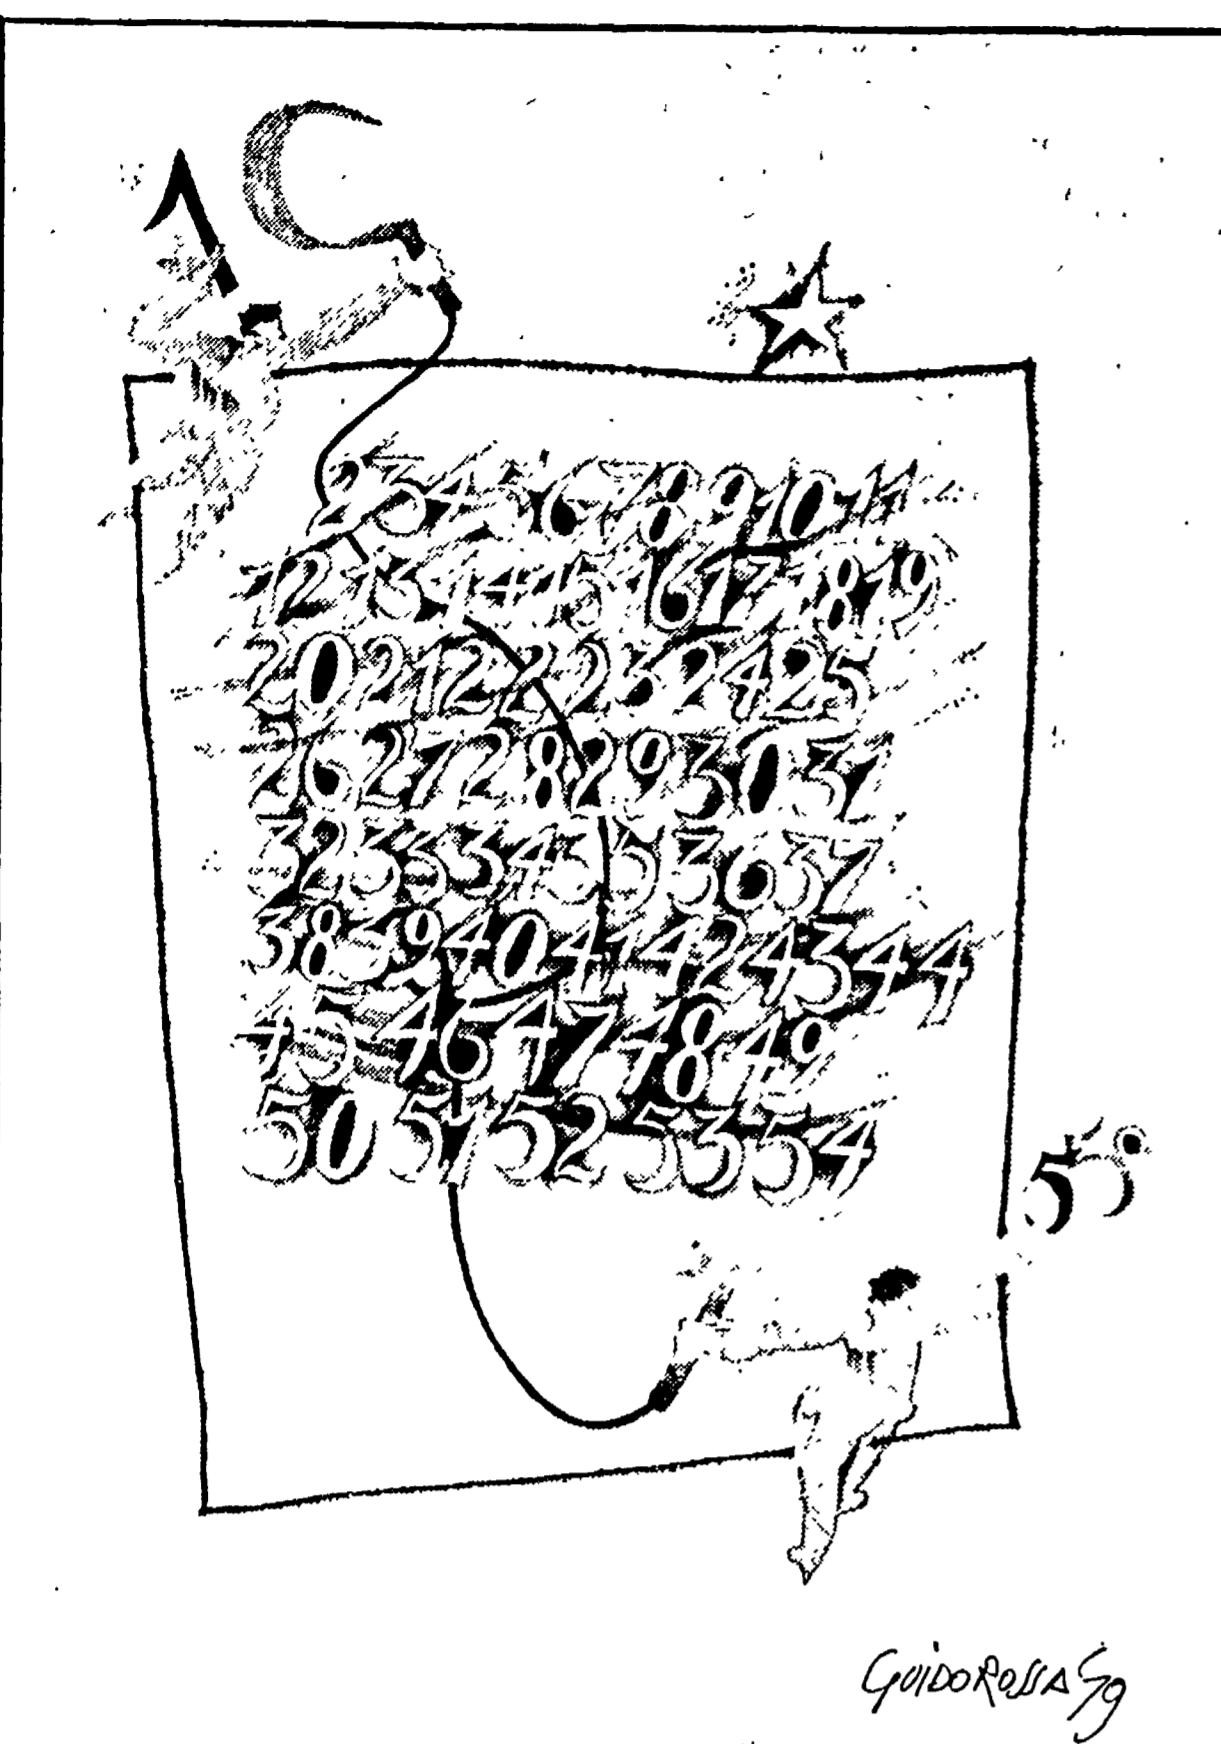 1
2 3 4 5 6 7 8 9 10 11
12 13 14 15 16 17 18 19
20 21 22 23 24 25
26 27 28 29 30 31
32 33 34 35 36 37
38 39 40 41 42 43 44
45 46 47 48 49
50 51 52 53 54
55°
GUIDOROSSA 79